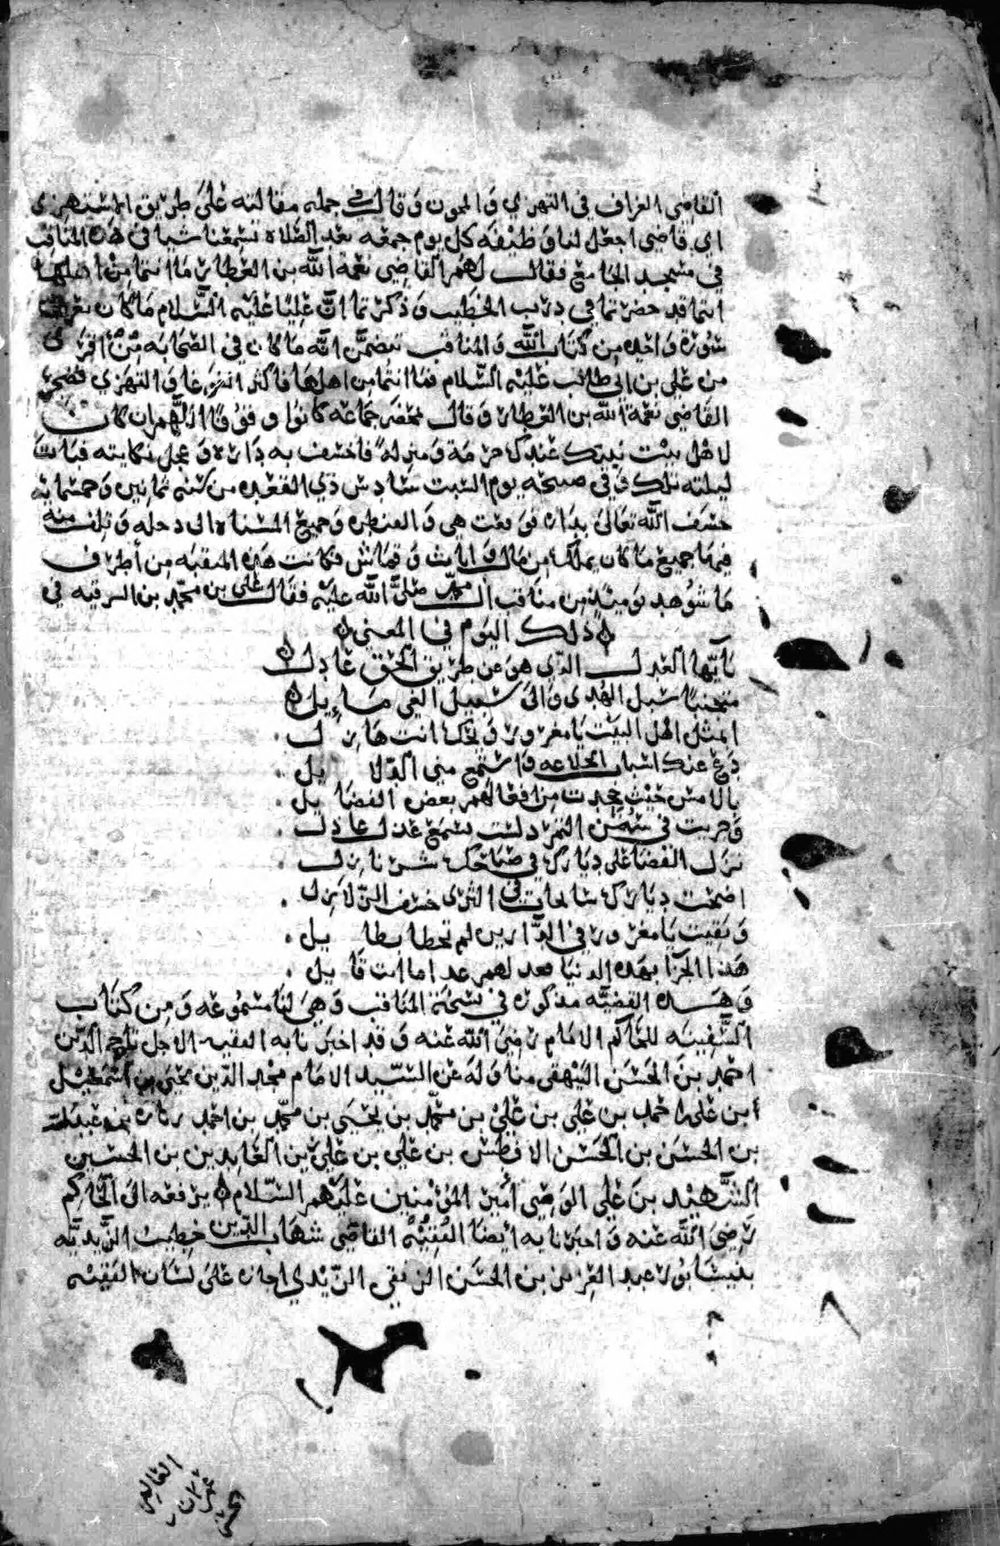 القاضي العراف في التهزي والمجون وقال في جمله مقالته على طريق المستهزي
اي قاضي اجعل لنا وظيفه كل يوم جمعه بعد الصلاة تسمعنا شيا في هذه المناقب
في مسجد الجامع فقال لهم القاضي نعمة الله بن العطار ما انتما من اهلها
انتما قد حضرتما في درب الخطيب وذكرتما ان عليا عليه السلام ما كان يعرف
سورة واحده من كتاب الله والمناقب تتضمن انه ما كان في الصحابه من اقرى
من علي بن ابي طالب عليه السلام فما انتما من اهلها فاكثر الغرير عا والتهزي فضجر
القاضي نعمة الله بن العطار وقال بمحضر جماعه كانوا وقوفا اللهم ان كان
لاهل بيت نبيك عندك حرمة ومنزلة فاخسف به داره وعجل نكايته فبات
ليلته تلك وفي صبيحه يوم السبت سادس ذي القعده من سنه ثمانين وخمسمايه
خسف الله تعالى بداره فوقعت هي والقنطره وجميع المسناه الى دجله وتلف منه
فيها جميع ما كان يملك من مال واثاث وقماش فكانت هذه المنقبه من اطرف
ما شوهد يوميئذ من مناقب ال محمد صلى الله عليه فقال علي بن محمد بن السرفيه في
ذلك اليوم في المعنى
يا ايها العدل الذي هو عن طريق الحق عادل
متجنبا سبل الهدى والى سبيل الغي مايل
ابمثل اهل البيت يا مغرور ويحك انت هازل
دع عنك اسباب الخلاعه واستمع مني الدلايل
بالامس حيث جحدت من افعالهم بعض الفضايل
وجريت في سنن التمرد لست تسمع عذل عاذل
نزل القضا على ديارك في صباحك شر نازل
اضحت ديارك سايحات في الثرى خسف الزلازل
وبقيت يا مغرور في الدارين لم تحظا بطايل
هذا الجزا بهذه الدنيا فعد لهم غدا ما انت قايل
وهذه القضيه مذكوره في نسخة المناقب وهي لنا مسموعه ومن كتاب
السفينه للحاكم الامام رضي الله عنه وقد اخبرنا به الفقيه الاجل تاج الدين
احمد بن الحسن البيهقي مناوله عن السيد الامام مجد الدين يحيى بن اسمعيل
ابن علي احمد بن علي بن علي بن محمد بن يحيى بن محمد بن احمد زباره بن عبدالله
بن الحسن بن الحسن الافطس بن علي بن علي زين العابدين بن الحسين
الشهيد بن علي الوصي امير المؤمنين عليهم السلام يرفعه الى الحاكم
رضي الله عنه واخبرنا به ايضا الفقيه القاضي شهاب الدين خطيب الزيديه
بنيسابور عبد العزيز بن الحسن الزيدي اجازه على لسان الفقيه